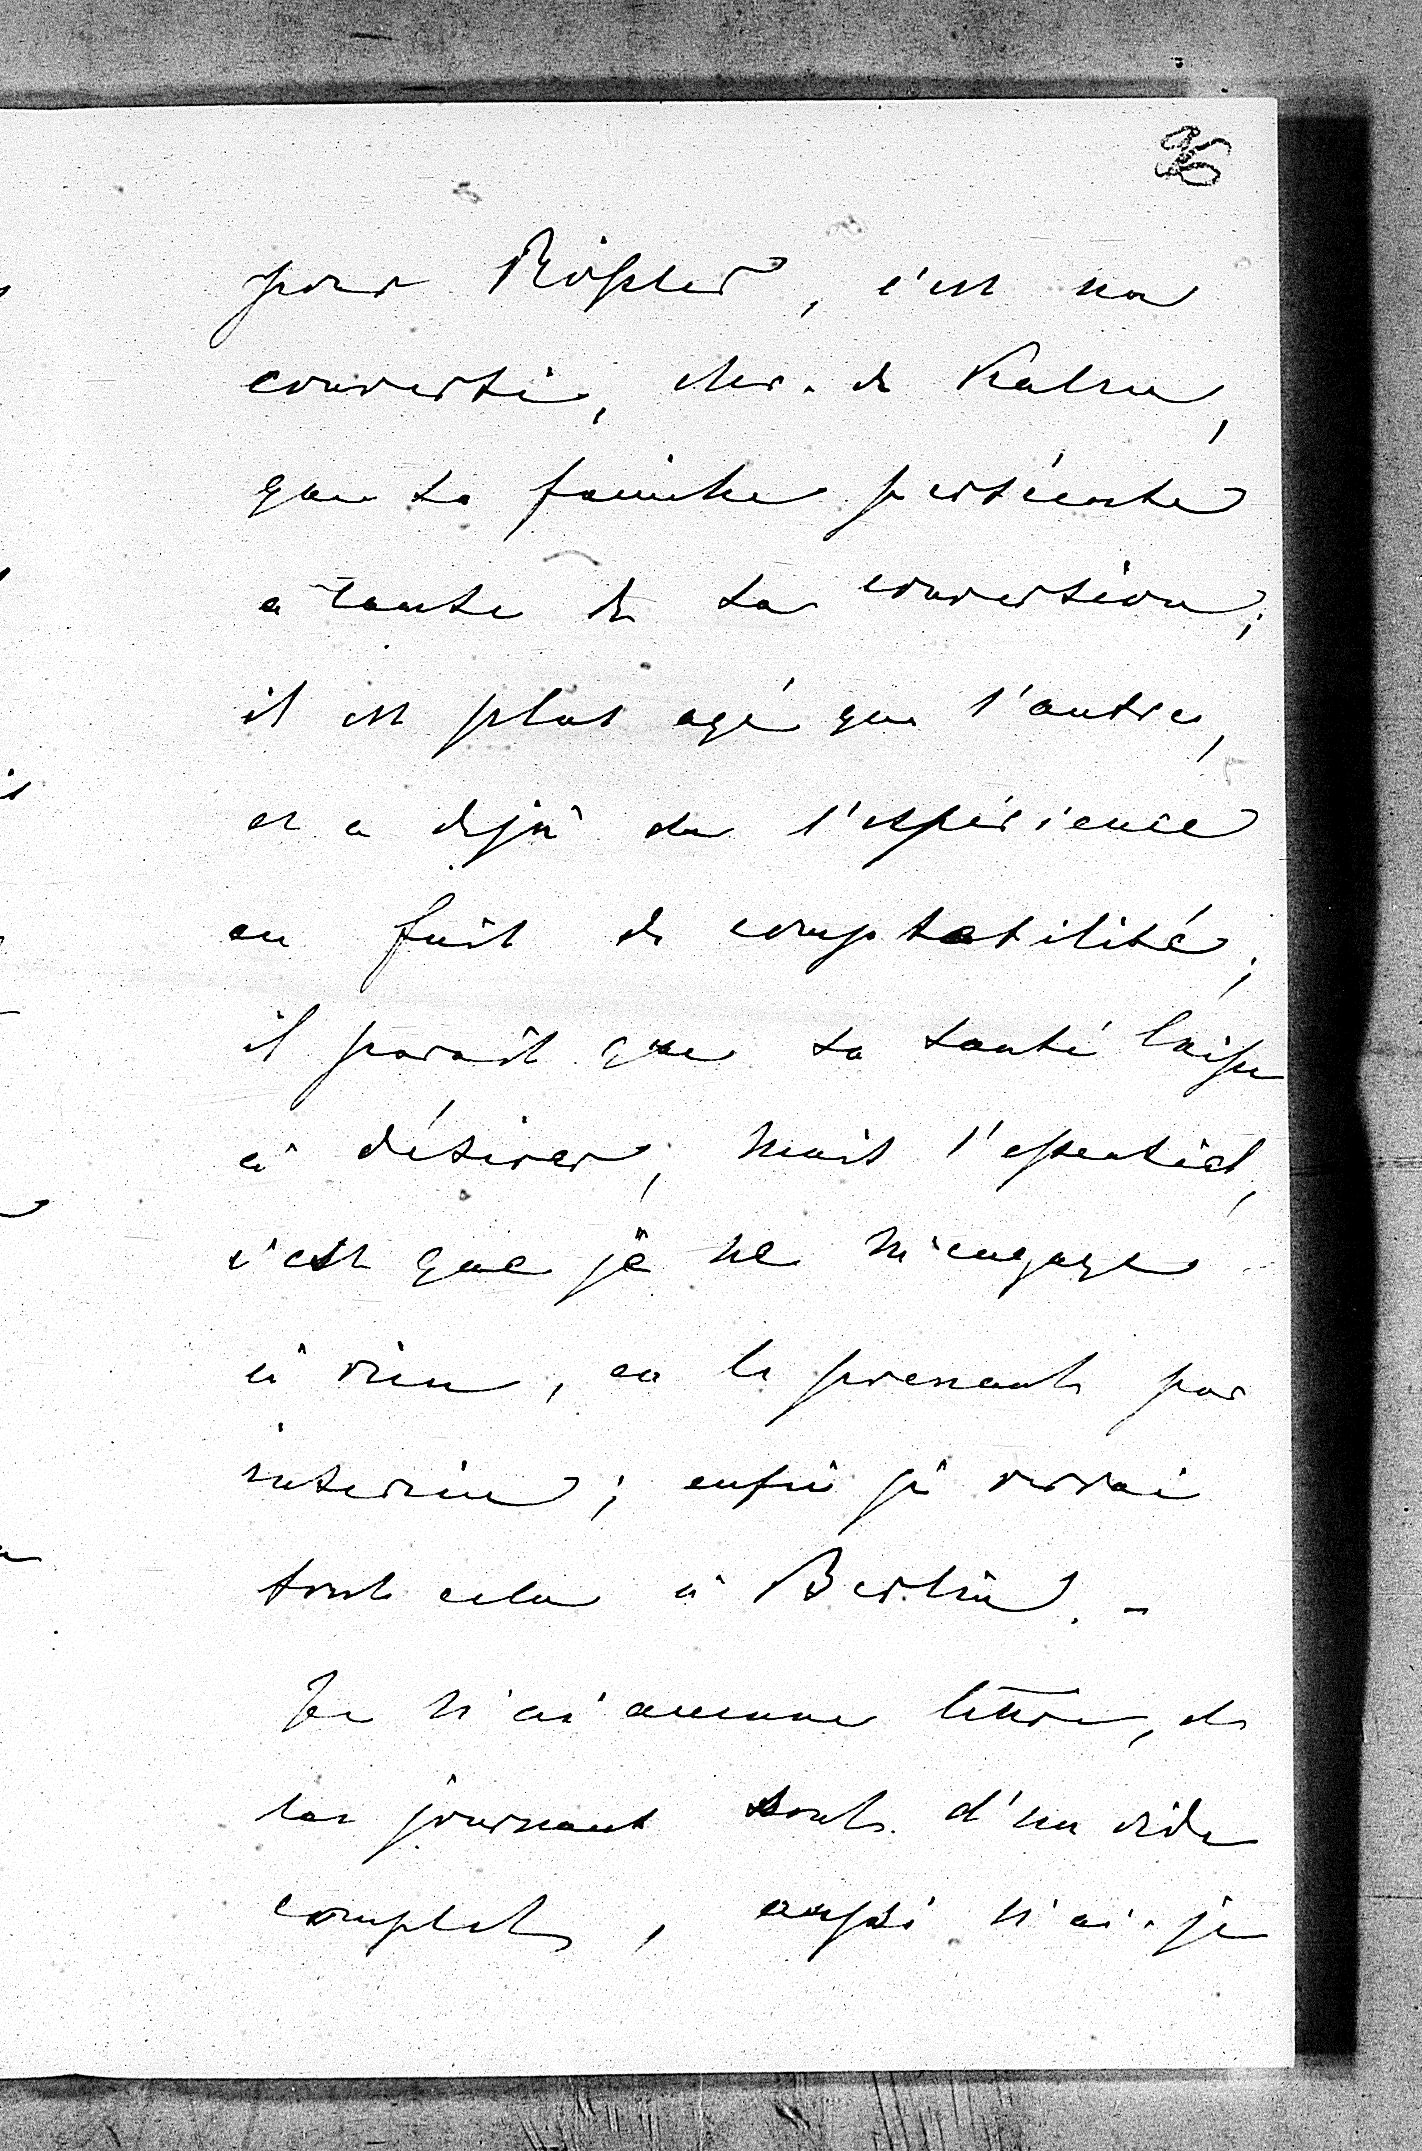 96
pour Rössler, c'est un
converti, chev. de Malte,
que sa famille persécute
a cause de sa conversion;
il est plus agé que l'autre,
et a déjà de l'expérience
en fait de comptabilité;
il parait que sa santé laisse
à désirer; mais l'essentiel,
c'est que je ne m'engage
à rien, en le prenant par
interim; enfin je verrai
tout cela à Berlin. -
Je n'ai aucune lettre, et
les journaux sont d'un vide
complet, aussi n'ai-je